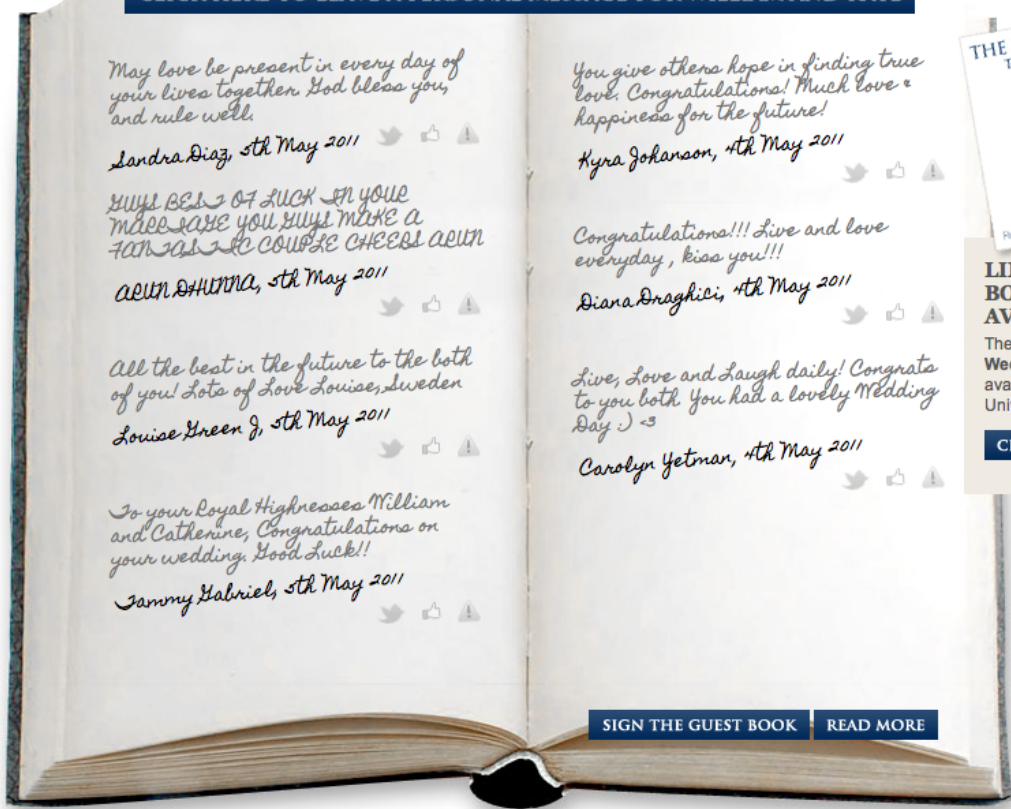 May love be present in every day of
your lives together. God bless you,
and rule well.
Sandra Diaz, 5th May 2011
GUYS BEST OF LUCK IN YOUR
MARRIAGE YOU GUYS MAKE A
FANTASTIC COUPLE CHEERS ARUN
ARUN DHUNNA, 5th May 2011
All the best in the future to the both
of you! Lots of Love Louise, Sweden
Louise Green J, 5th May 2011
To your Royal Highnesses William
and Catherine, Congratulations on
your wedding. Good Luck!!
Tammy Gabriel, 5th May 2011
You give others hope in finding true
love. Congratulations! Much love &
happiness for the future!
Kyra Johanson, 4th May 2011
Congratulations!!! Live and love
everyday , kiss you!!!
Diana Draghici, 4th May 2011
Live, Love and Laugh daily! Congrats
to you both. You had a lovely Wedding
Day :) <3
Carolyn Yetman, 4th May 2011
SIGN THE GUEST BOOK
READ MORE
THE
The